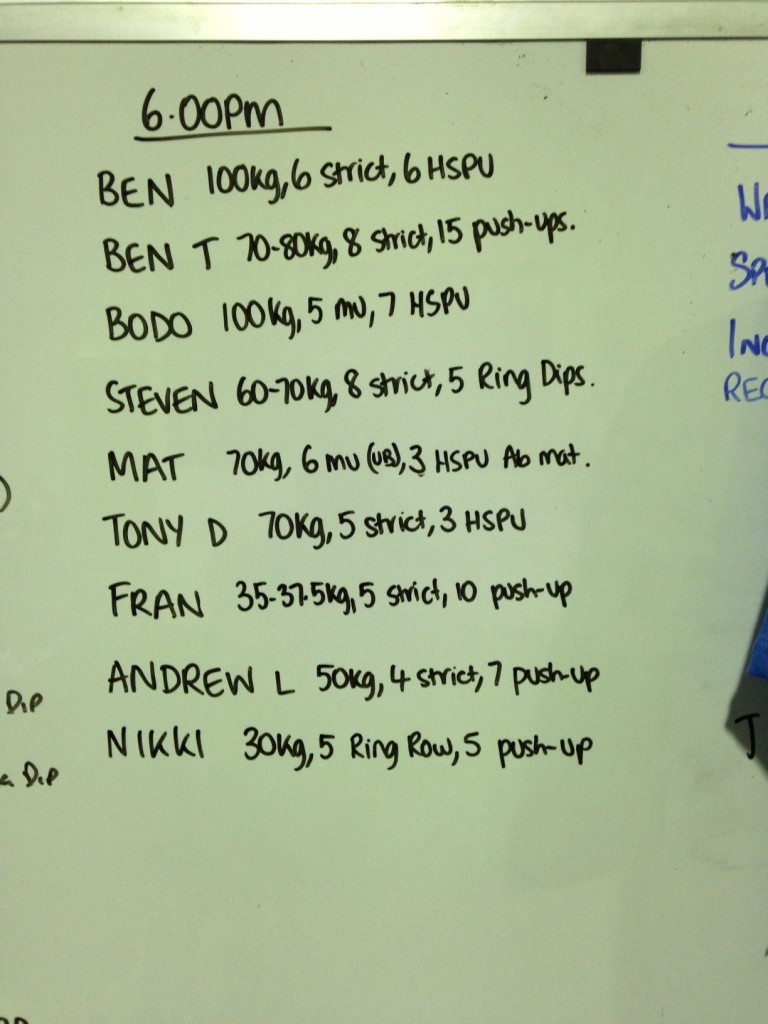 6.00PM
BEN 100kg, 6 strict, 6 HSPU
BEN T 70-80kg, 8 strict, 15 push-ups.
BODO 100kg, 5 mu, 7 HSPU
STEVEN 60-70kg, 8 strict, 5 Ring Dips.
MAT 70kg, 6 mu (UB), 3 HSPU Ab mat.
TONY D 70kg, 5 strict, 3 HSPU
FRAN 35-37.5kg, 5 strict, 10 push-up
ANDREW L 50kg, 4 strict, 7 push-up
NIKKI 30kg, 5 Ring Row, 5 push-up
Dip
Dip
REC
J